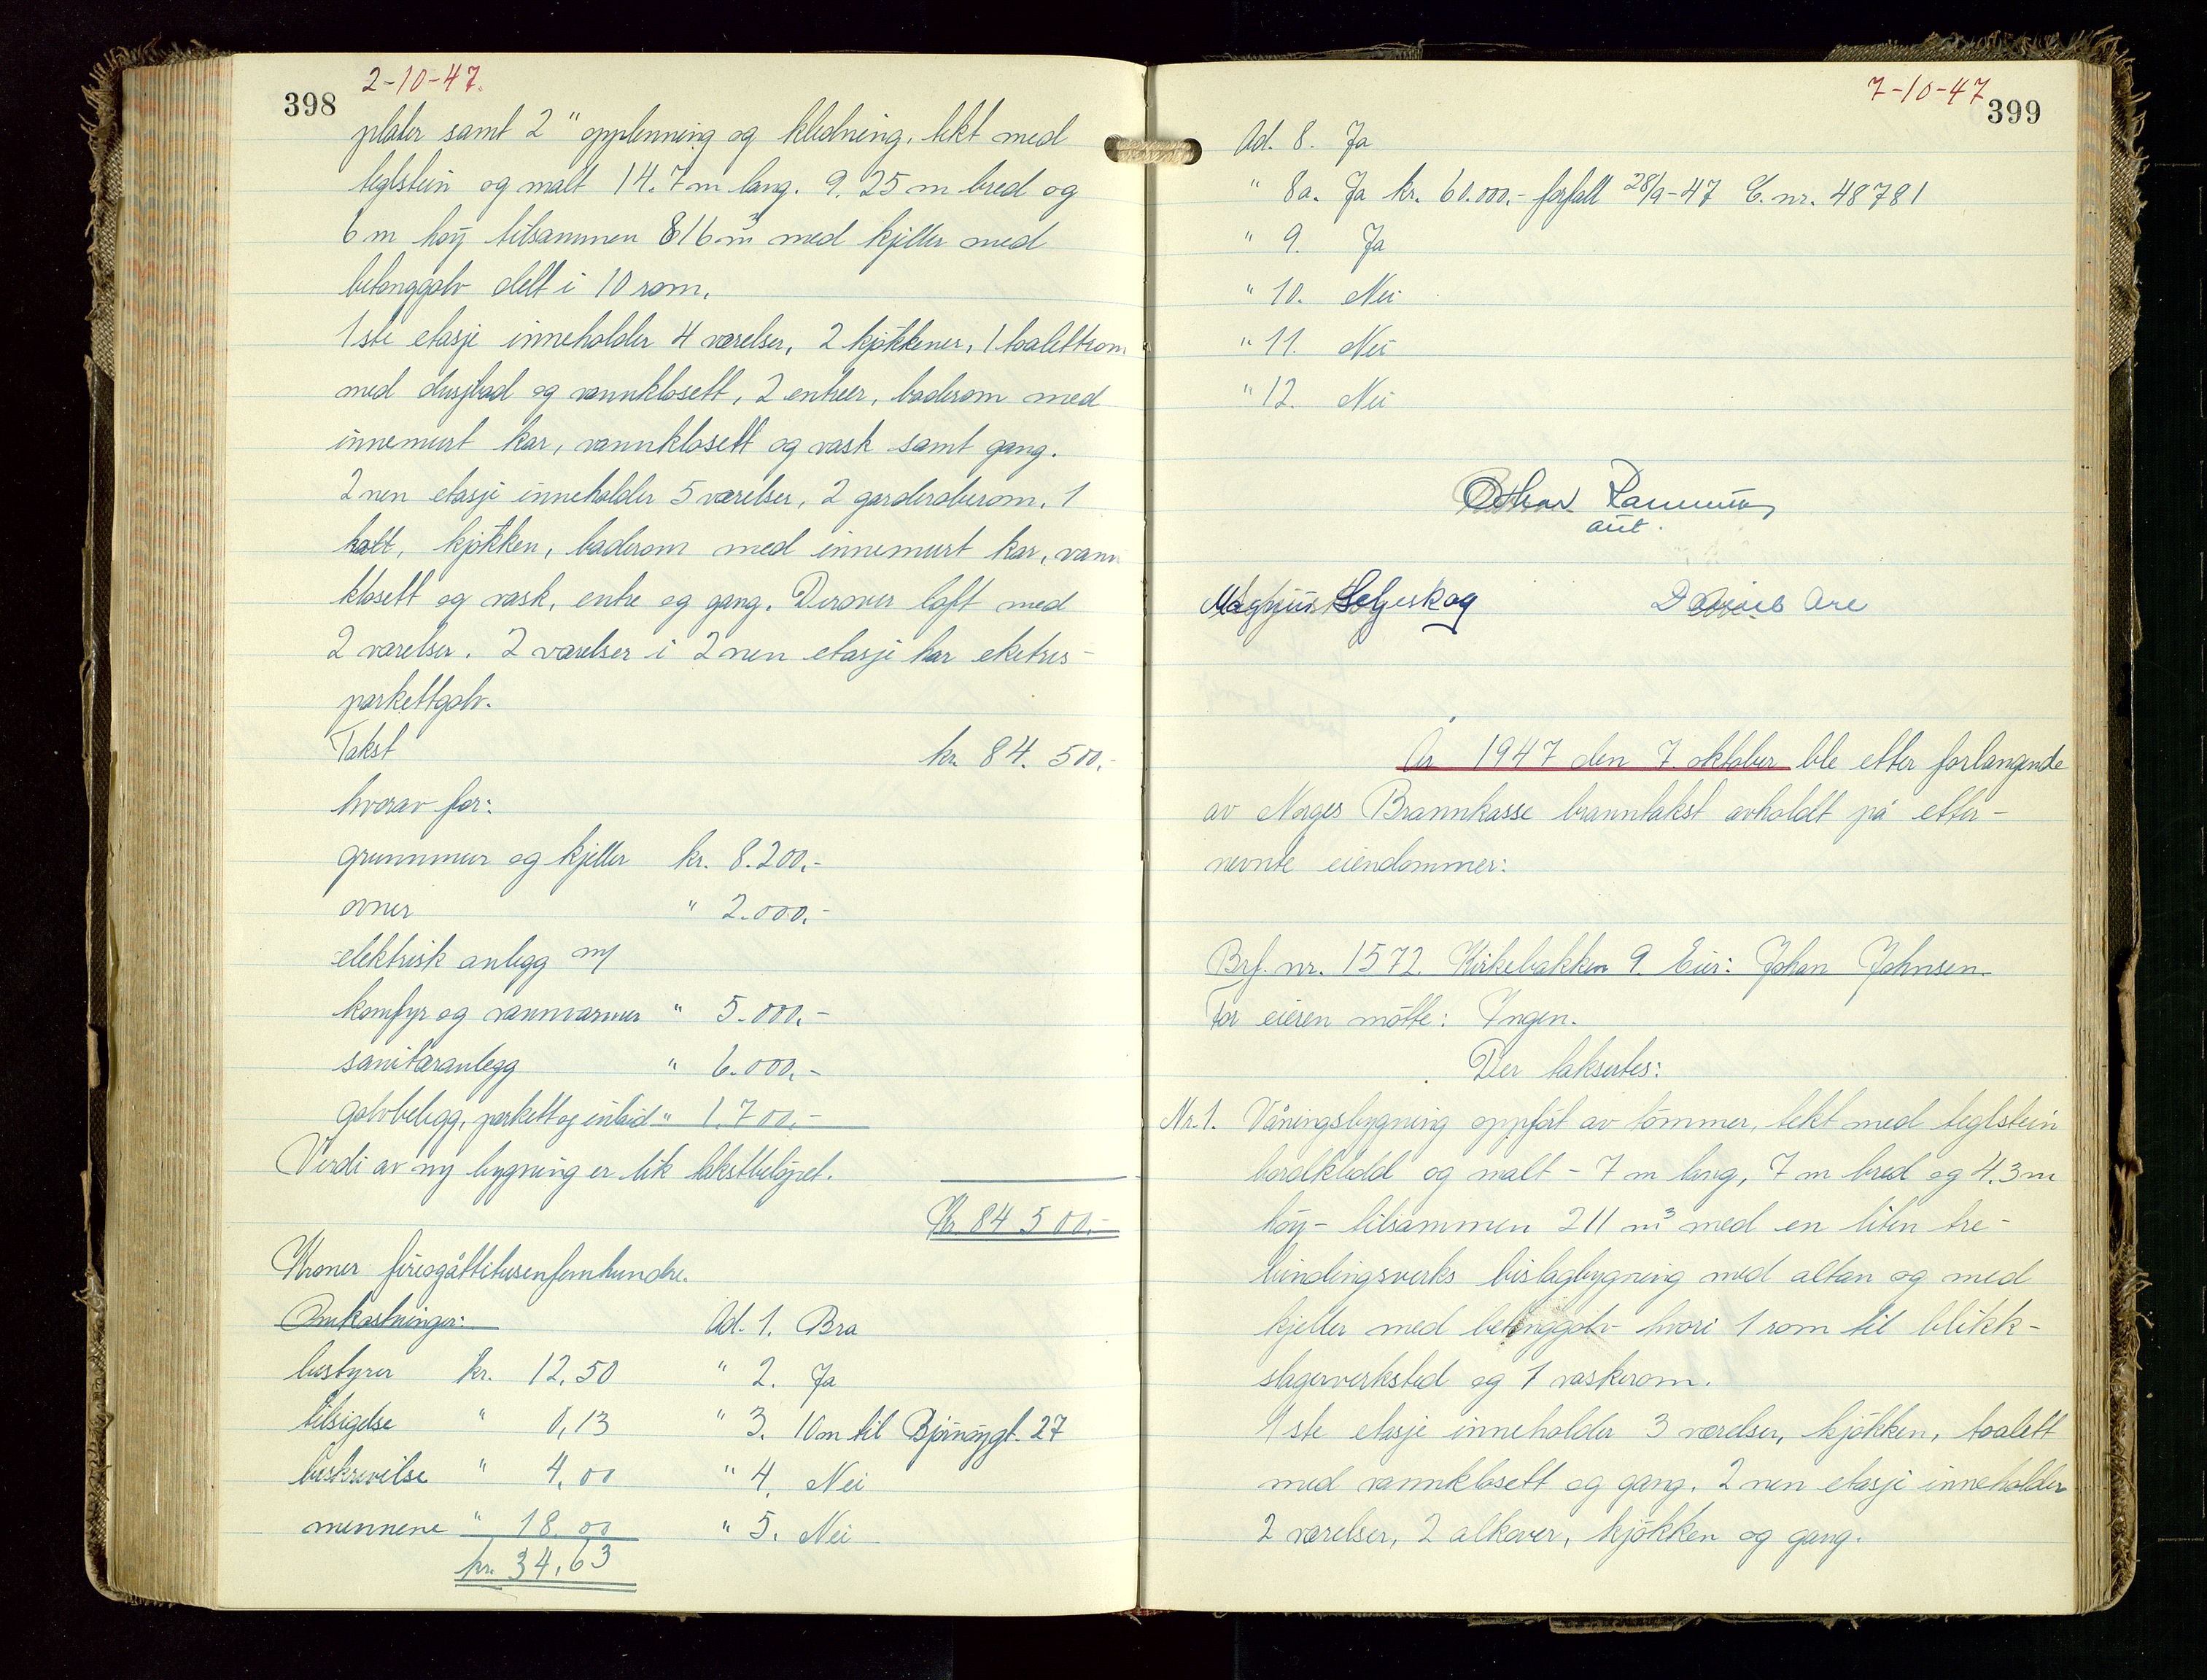 2-10-47.
398
plater samt 2" opplenning og kledning, tekt med
teglstein og malt 14.7 m lang. 9.25 m bred og
6 m høy tilsammen 816 m³ med kjeller med
betonggolv delt i 10 rom.
1ste etasje inneholder 4 værelser, 2 kjøkkener, 1 toalettrom
med dusjbad og vannklosett, 2 entreer, baderom med
innemurt kar, vannklosett og vask samt gang.
2nen etasje inneholder 5 værelser, 2 garderoberom, 1
kott, kjøkken, baderom med innemurt kar, vann
klosett og vask, entre og gang. Derover loft med
2 værelser. 2 værelser i 2nen etasje har eketres-
parkettgolv.
Takst kr. 84.500.-
hvorav for:
grunnmur og kjeller kr. 8.200.-
ovner " 2.000.-
elektrisk anlegg m/
komfyr og vannvarmer " 5.000.-
sanitæranlegg " 6.000.-
golvbelegg, parkett og inlaid " 1.700.-
Verdi av ny bygning er lik takstbeløpet.
Kr. 84 500.-
Kroner firiogåttitusenfemhundre.
Omkostninger: Ad. 1. Bra
bestyrer kr. 12,50 " 2. Ja
tilsigelse " 0,13 " 3. 10 m til Bjørnøygt. 27
beskrivelse " 4,00 " 4. Nei
mennene " 18.00 " 5. Nei
kr. 34,63
7-10-47
399
Ad. 8. Ja
" 8a. Ja kr. 60.000.- forfalt 28/9-47 C. nr. 48781
" 9. Ja
" 10. Nei
" 11. Nei
" 12. Nei
Othar
aut.
Magnus Seljeskog Are
År 1947 den 7. oktober ble etter forlangende
av Norges Brannkasse branntakst avholdt på etter-
nevnte eiendommer:
Brf. nr. 1572. Kirkebakken 9. Eier: Johan Johnsen.
For eieren møtte: Ingen.
Der taksertes:
Nr. 1. Våningsbygning oppført av tømmer, tekt med teglstein
bordkledd og malt - 7 m lang, 7 m bred og 4.3 m
høy - tilsammen 211 m³ med en liten tre-
bindingsverks bislagbygning med altan og med
kjeller med betonggolv hvori 1 rom til blikk-
slagerverksted og 1 vaskerom.
1ste etasje inneholder 3 værelser, kjøkken, toalett
med vannklosett og gang. 2nen etasje inneholder
2 værelser, 2 alkover, kjøkken og gang.